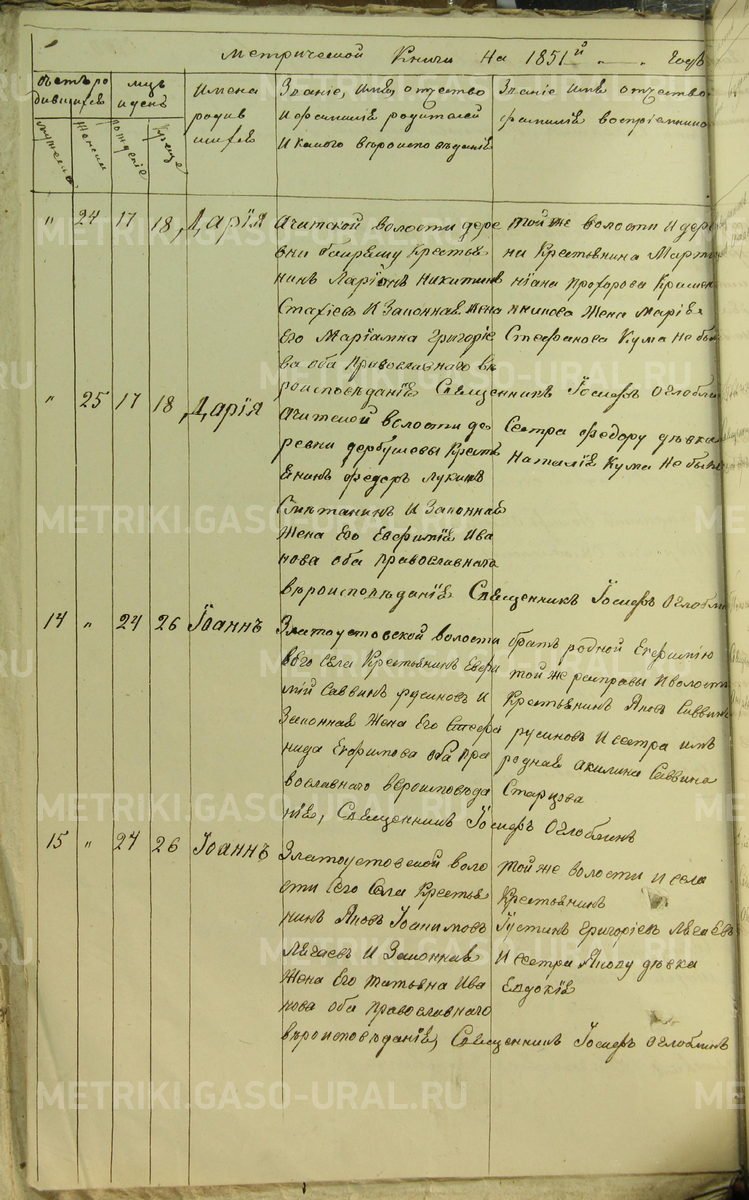 Метрической Книги На 1851й „ „ Годъ
Счетъ родившихся
мужеска
Женска
мць и день
рождение
Крещение
Имена родившихся
Званіе, имя, отчество
и фамилія родителей
и какого вѣроисповѣданія
Званіе имя отчество
фамилія восприемников
„ 24 17 18 Дарія
Ачитской волости дере
вни
Крестья
нинъ Ларіонъ Никитинъ
Стахіевъ И Законная жена
Его Маріамна Григоріе
ва оба Православнаго вѣ
роисповѣданіе Священникъ Іосифъ Оглоблин
той же волости И дерев
ни Крестьянина Марти
ніана Прохорова
жена Марія
Стефанова Кума не был
„ 25 17 18 Дарія
Ачитской волости де
ревни дербушевы Крестья
енинъ федоръ Лукинъ
И Законная
Жена Его Евфимія Ива
нова оба Православнаго
вѣроисповѣданіе Священникъ Іосифъ Оглобли
Сестра федору дѣвка
Наталія Кума не был
14 „ 24 26 Іоаннъ
Златоустовской волости
Села Крестьянинъ Евфи
мій Саввинъ русиновъ И
Законная Жена Его Стефа
нида Ефимова оба пра
вославнаго вѣроисповѣда
ніе, Священникъ Іосифъ Оглоблинъ
братъ родной Евфимію
той же расправы И волости
Крестьянинъ Яковъ Саввинъ
русиновъ И сестра имъ
родная Акилина Саввина
Старцова
15 „ 24 26 Іоаннъ
Златоустовской воло
сти Сего Села Крестья
нинъ Яковъ Іоакимовъ
Лѣгаевъ И Законная
Жена Его татьяна Ива
нова оба Православнаго
вѣроисповѣданіе, Священникъ Іосифъ Оглоблинъ
той же волости И села
Крестьянинъ
Іустинъ Григоріевъ Лѣгаевъ
И сестра Якову дѣвка
Евдокія
METRIKI.GASO-URAL.RU